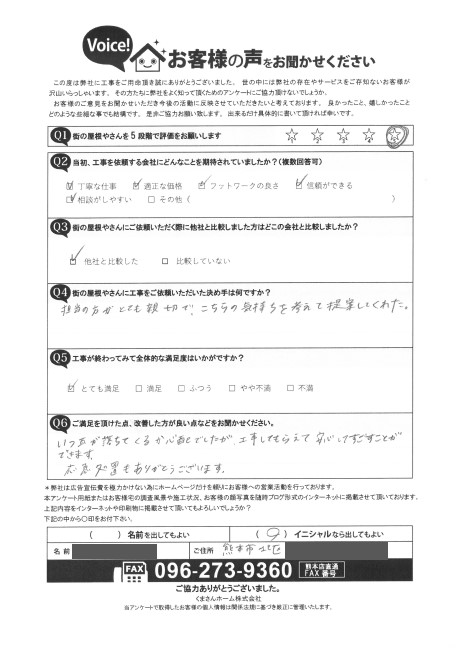 Voice! お客様の声をお聞かせください
この度は弊社に工事をご用命頂き誠にありがとうございました。世の中には弊社の存在やサービスをご存知ないお客様が
沢山いらっしゃいます。その方たちに弊社をよく知って頂くためのアンケートにご協力頂けないでしょうか。
お客様のご意見をお聞かせいただき今後の活動に反映させていただきたいと考えております。良かったこと、嬉しかったこと
どのような些細な事でも結構です。是非ご協力お願い致します。出来るだけ具体的に書いて頂ければ幸いです。
Q1 街の屋根やさんを5段階で評価をお願いします ☆ ☆ ☆ ☆ ☆
Q2 当初、工事を依頼する会社にどんなことを期待されていましたか？(複数回答可)
☑ 丁寧な仕事 ☑ 適正な価格 ☑ フットワークの良さ ☑ 信頼ができる
☑ 相談がしやすい □ その他( )
Q3 街の屋根やさんにご依頼いただく際に他社と比較しました方はどこの会社と比較しましたか？
☑ 他社と比較した □ 比較していない
Q4 街の屋根やさんに工事をご依頼いただいた決め手は何ですか？
担当の方がとても親切で、こちらの気持ちを考えて提案してくれた。
Q5 工事が終わってみて全体的な満足度はいかがですか？
☑ とても満足 □ 満足 □ ふつう □ やや不満 □ 不満
Q6 ご満足を頂けた点、改善した方が良い点などをお聞かせください。
いつ瓦が落ちてくるか心配でしたが、工事してもらえて安心してすごすことが
できます。
応急処置もありがとうございます。
＊弊社は広告宣伝費を極力かけない為にホームページだけを頼りにお客様への営業活動を行っております。
本アンケート用紙またはお客様宅の調査風景や施工状況、お客様の顔写真を随時ブログ形式のインターネットに掲載させて頂いております。
上記内容をインターネットや印刷物に掲載させて頂いてもよろしいでしょうか？
下記の中から〇印をお付下さい。
( ) 名前を出してもよい (〇) イニシャルなら出してもよい
名前 ご住所 熊本市北区
FAX 096-273-9360 熊本店直通
FAX番号
ご協力ありがとうございました。
くまさんホーム株式会社
当アンケートで取得したお客様の個人情報は関係法規に基づき厳正に管理いたします。